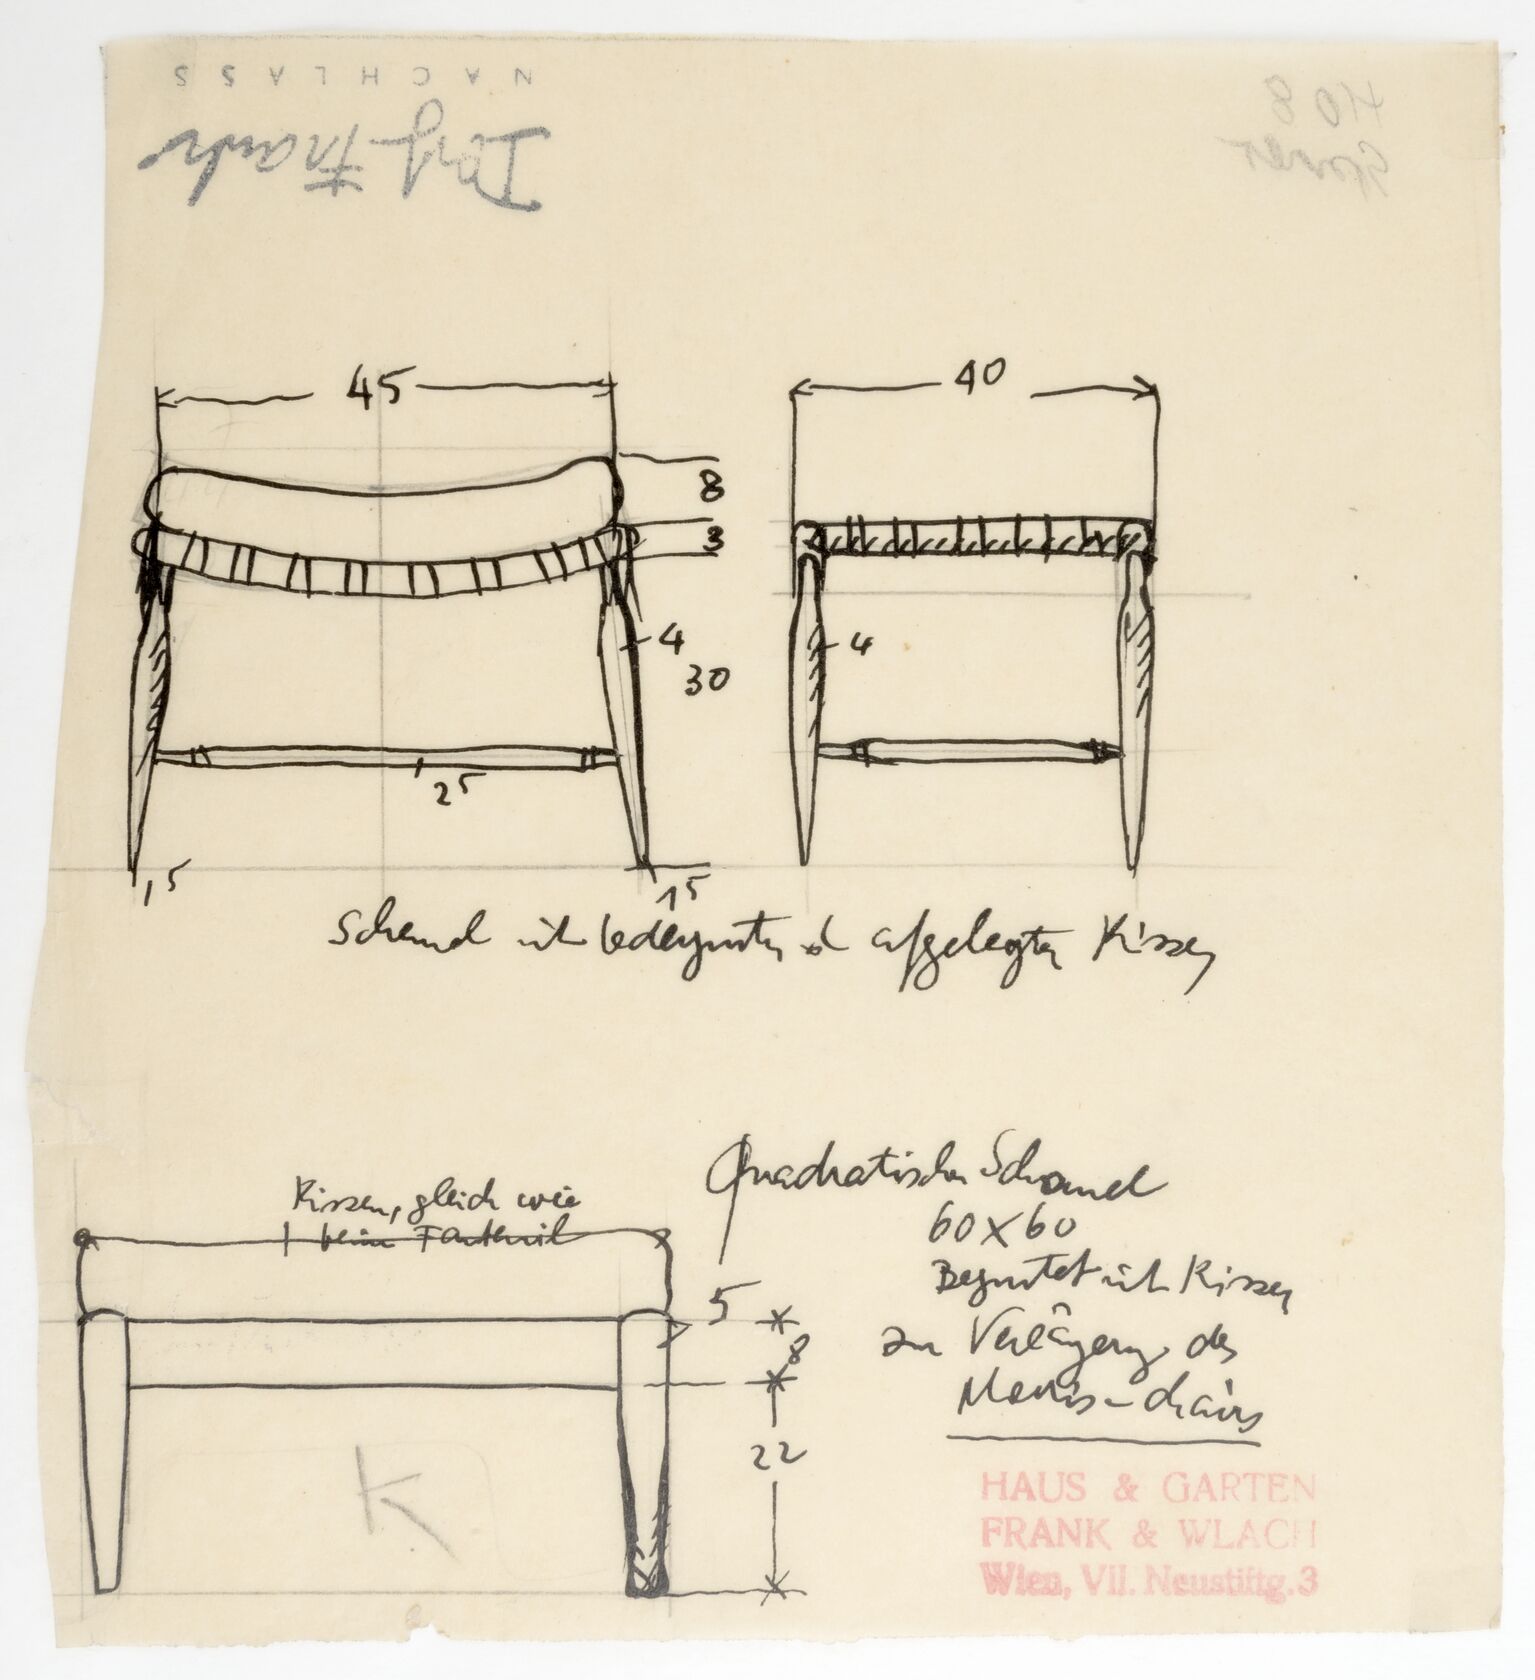 NACHLASS
Josef Frank
HO 8
45
40
8
3
4
30
4
25
15
15
Schemel mit Kissen
Kissen, gleich wie
beim Fauteuil
Quadratischer Schemel
60 X 60
Begurtet mit Kissen
zur Verlängerung des
Morris-chairs
5
8
22
K
HAUS & GARTEN
FRANK & WLACH
Wien, VII. Neustiftg. 3